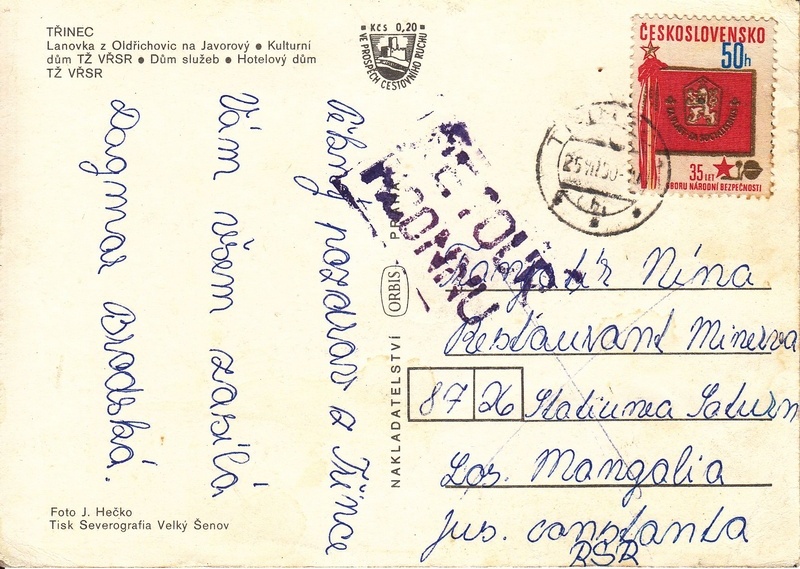 TŘINEC
Lanovka z Oldřichovic na Javorový ● Kulturní
dům TŽ VŘSR ● Dům služeb ● Hotelový dům
TŽ VŘSR
Kčs 0,20
VE PROSPĚCH CESTOVNÍHO RUCHU
ČESKOSLOVENSKO
50h
35 LET
SBORU NÁRODNÍ BEZPEČNOSTI
RETOUR
Pěkný pozdrav z Třince
Vám všem zasílá
Dagmar Brodská.
NAKLADATELSTVÍ ORBIS PRAHA
Nina
Restaurant Minerva
87 26 Statiunea Saturn
Loc. Mangalia
jus. constanta
RSR
Foto J. Hečko
Tisk Severografia Velký Šenov